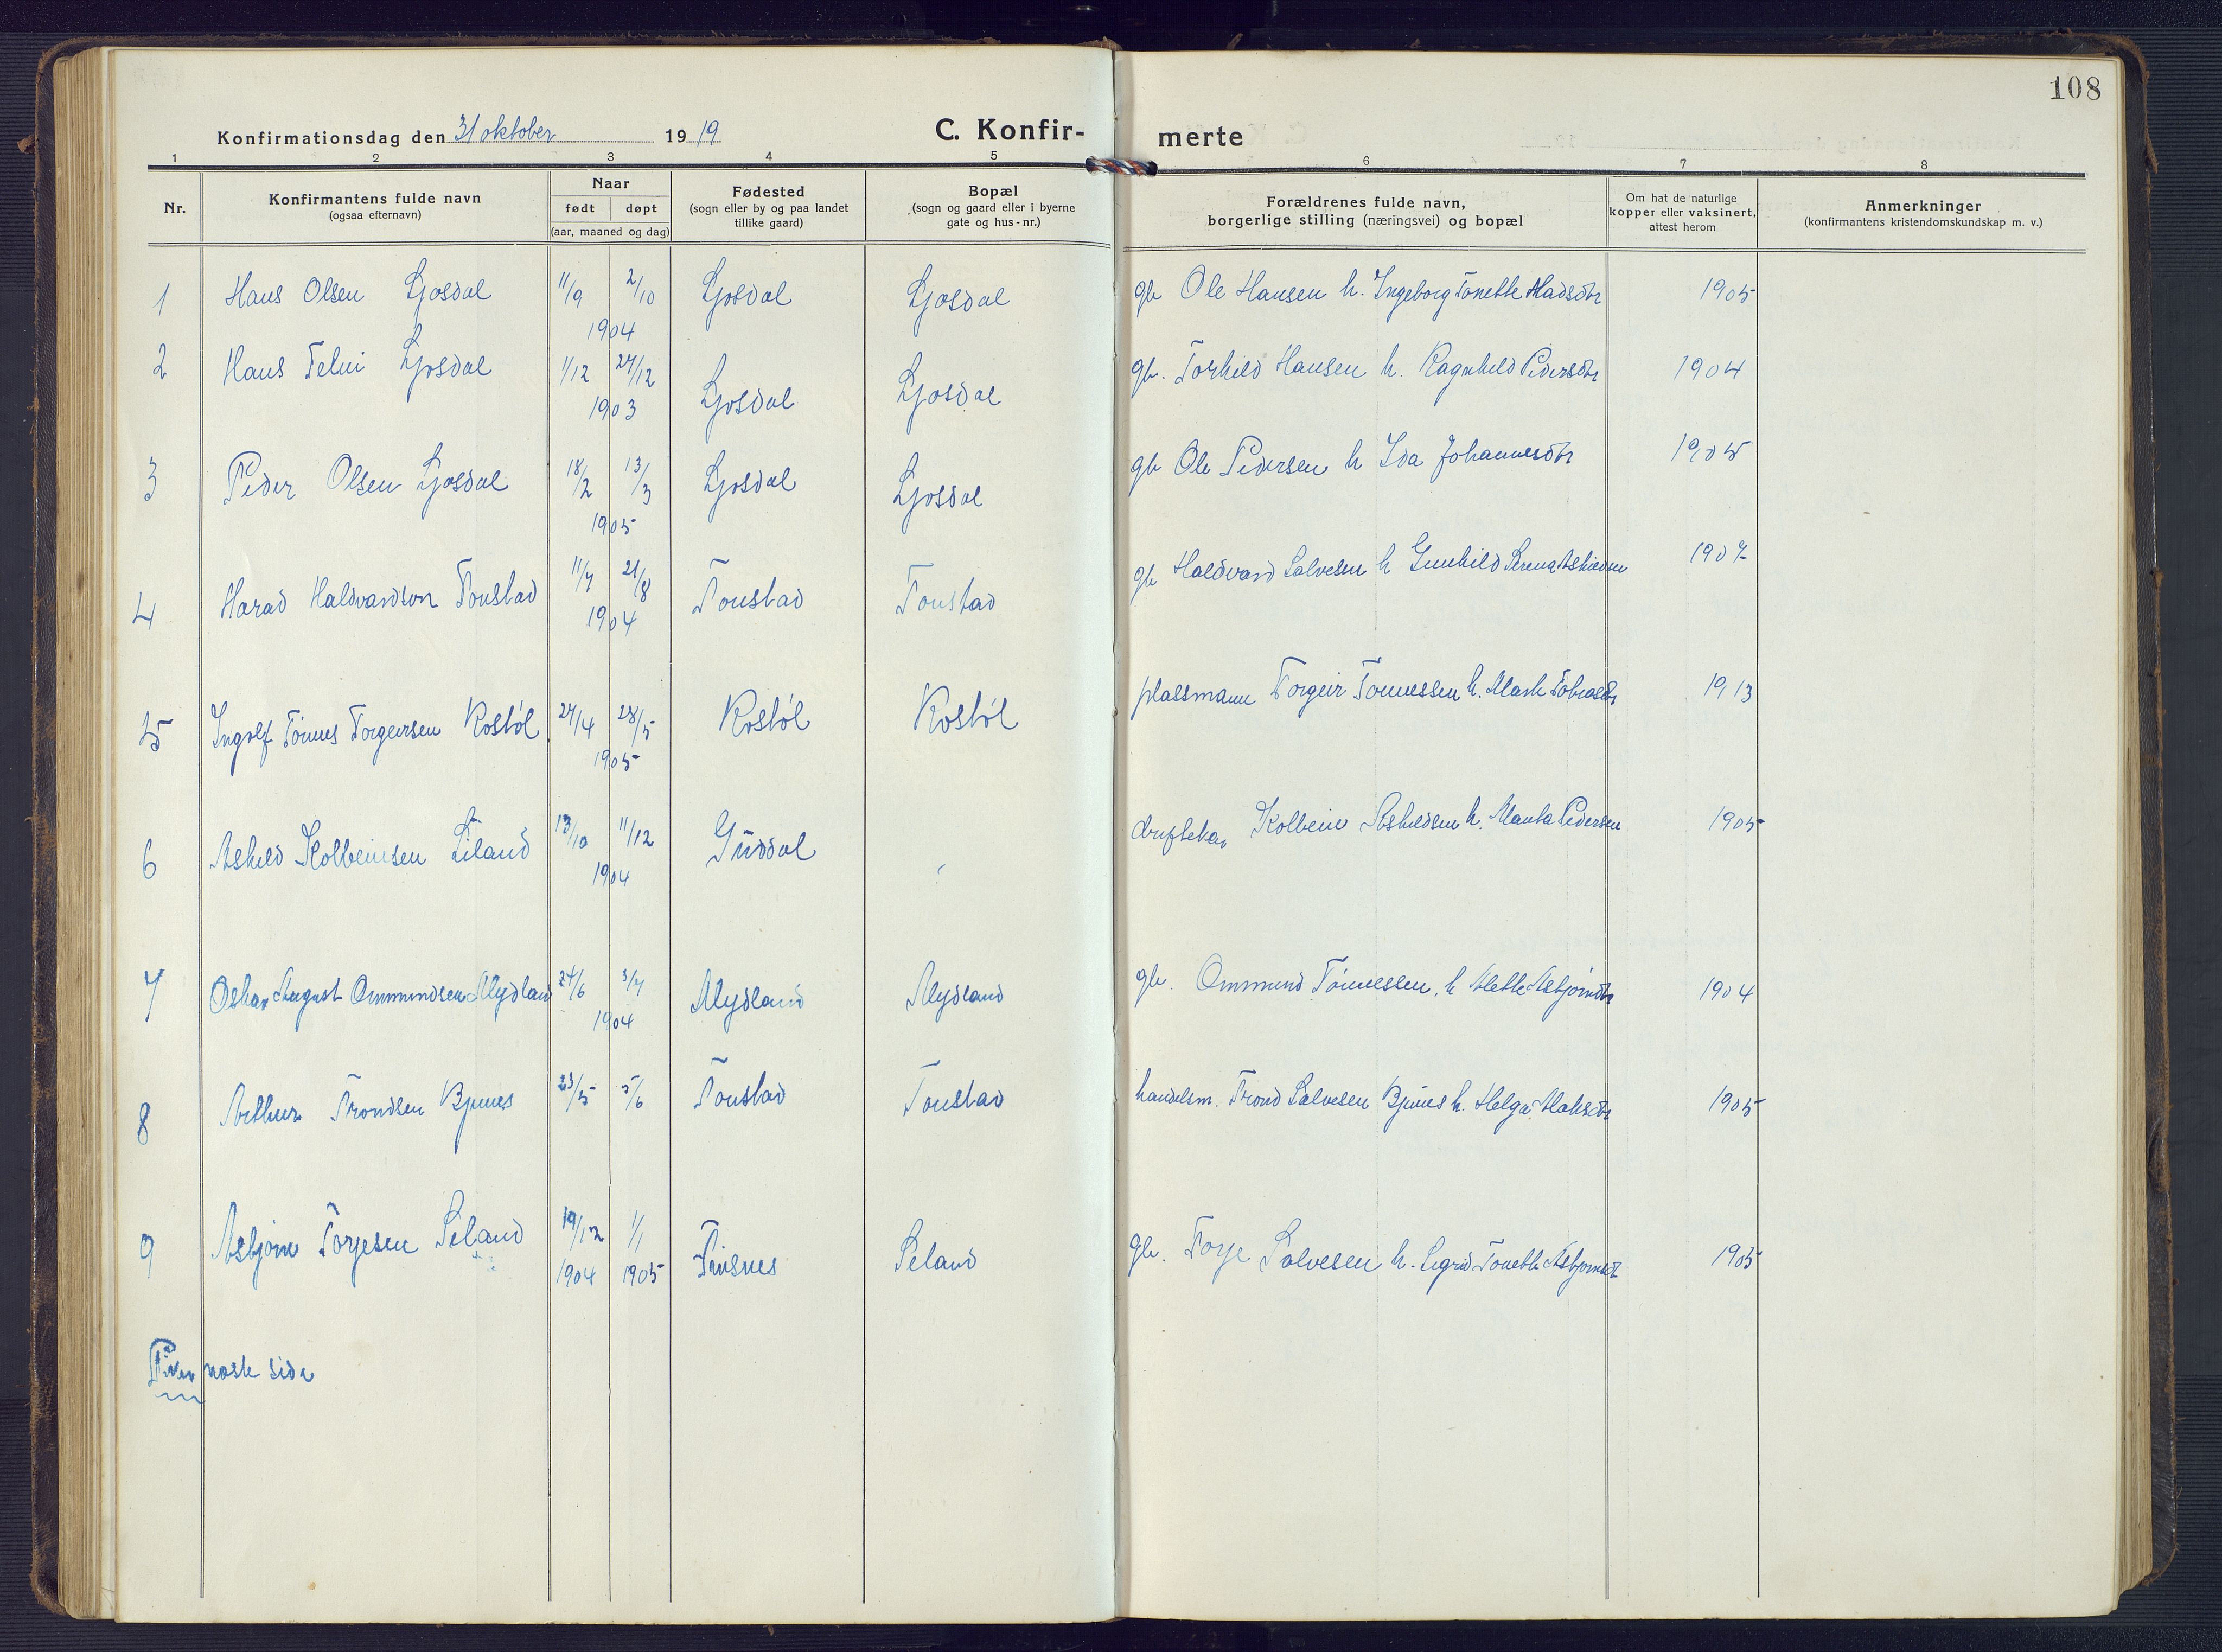 108
Konfirmationsdag den 31 oktober 1919 C. Konfir- merte
1 2 3 4 5 6 7 8
Nr.
Konfirmantens fulde navn
(ogsaa efternavn)
Naar
født døpt
(aar, maaned og dag)
Fødested
(sogn eller by og paa landet
tillike gaard)
Bopæl
(sogn og gaard eller i byerne
gate og hus-nr.)
Forældrenes fulde navn,
borgerlige stilling (næringsvei) og bopæl
Om hat de naturlige
kopper eller vaksinert,
attest herom
Anmerkninger
(konfirmantens kristendomskundskap m. v.)
1 Hans Olsen Ljosdal 11/9 2/10 Ljosdal Ljosdal gb Ole Hansen h. Ingeborg Tonette Madsdtr 1905
1904
2 Hans Ljosdal 1/12 27/12 Ljosdal Ljosdal gb. Torkild Hansen h. Ragnhild Pedersdtr 1904
1903
3 Peder Olsen Ljosdal 18/2 13/3 Ljosdal Ljosdal gb Ole Pedersen h Ida Johannesdtr 1905
1905
4 Harad Haldvardson Tonstad 11/7 21/8 Tonstad Tonstad gb Haldvard Salvesen h Gunhild Serena 1907
1904
5 Ingolf Tønnes Torgeirsen Rostøl 27/4 28/5 Rostøl Rostøl plassmann Torgeir Tønnessen h. Marte Tobiasdtr 1913
1905
6 Askild Kolbeinsen Liland 13/10 11/12 Guddal Kolbein Askildsen h. Marta Pedersen 1905
1904
7 Oskar August Ommundsen Mydland 24/6 3/7 Mydland Mydland gb. Ommund Tønnessen h Mette Asbjørndtr 1904
1904
8 Arthur Trondsen Bjunes 23/5 5/6 Tonstad Tonstad handelsm. Trond Salvesen Bjunes h. Helga 1905
9 Asbjørn Torjesen Seland 19/12 1/1 Finsnes Seland gb. Torje Salvesen h. Sigrid Tonette Asbjørnsdt 1905
1904 1905
Piker næste side